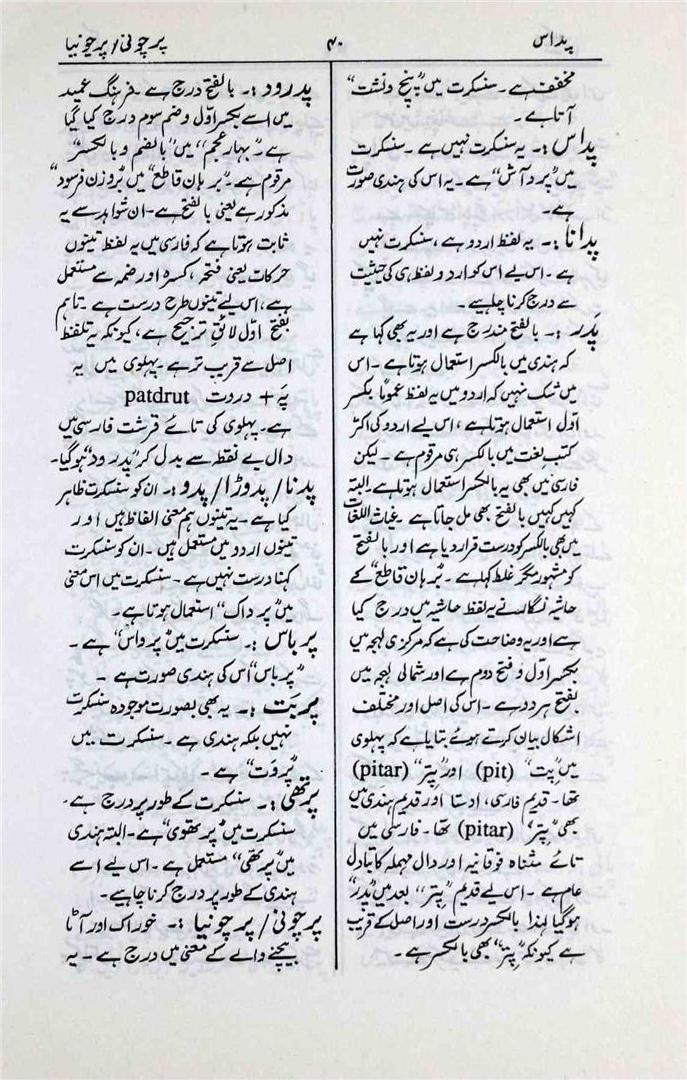 پداس
۴۰
پرچونی/پرچونیا
مخفف ہے۔ سنسکرت میں ”پنچ ونشت“
آتا ہے۔
پداس :۔ یہ سنسکرت نہیں ہے۔ سنسکرت
میں ”پرد آش“ ہے۔ یہ اس کی ہندی صورت
ہے۔
پدانا :۔ یہ لفظ اردو ہے، سنسکرت نہیں
ہے۔ اس لیے اس کو اردو لفظ ہی کی حیثیت
سے درج کرنا چاہیے۔
پَدَر :۔ بالفتح مندرج ہے اور یہ بھی کہا ہے
کہ ہندی میں بالکسر استعمال ہوتا ہے۔ اس
میں شک نہیں کہ اردو میں یہ لفظ عموماً بکسر
اول استعمال ہوتا ہے، اس لیے اردو کی اکثر
کتب لغت میں بالکسر ہی مرقوم ہے۔ لیکن
فارسی میں بھی یہ بالکسر استعمال ہوتا ہے۔ البتہ
کہیں کہیں بالفتح بھی مل جاتا ہے۔ غیاث اللغات
میں بھی بالکسر کو درست قرار دیا ہے اور بالفتح
کو مشہور مگر غلط کہا ہے۔ ”برہان قاطع“ کے
حاشیہ نگار نے یہ لفظ حاشیہ میں درج کیا
ہے اور یہ وضاحت کی ہے کہ مرکزی لہجہ میں
بکسر اوّل و فتح دوم ہے اور شمالی لہجہ میں
بفتح ہر دو ہے۔ اس کی اصل اور مختلف
اشکال بیان کرتے ہوئے بتایا ہے کہ پہلوی
میں ”پت“ (pit) اور ”پِتر“ (pitar)
تھا۔ قدیم فارسی، اوستا اور قدیم ہندی میں
بھی ”پِتر“ (pitar) تھا۔ فارسی میں
تائے مثناہ فوقانیہ اور دال مہملہ کا تبادل
عام ہے۔ اس لیے قدیم ”پتر“ بعد میں ”پدر“
ہو گیا لہٰذا بالکسر درست اور اصل کے قریب
ہے کیونکہ ”پِتر“ بھی بالکسر ہے۔
پدرود :۔ بالفتح درج ہے۔ فرہنگ عمید
میں اسے بکسر اوّل وضم سوم درج کیا گیا
ہے۔ ”بہار عجم“ میں ”بالضم و بالکسر“
مرقوم ہے۔ ”برہان قاطع“ میں ”بروزن فرسود“
مذکور ہے یعنی بالفتح ہے۔ ان شواہد سے یہ
ثابت ہوتا ہے کہ فارسی میں یہ لفظ تینوں
حرکات یعنی فتحہ، کسرہ اور ضمہ سے مستعمل
ہے، اس لیے تینوں طرح درست ہے۔ تاہم
بفتح اوّل لائق ترجیح ہے، کیونکہ یہ تلفظ
اصل سے قریب تر ہے۔ پہلوی میں یہ
پَہ + دروت patdrut
ہے۔ پہلوی کی تائے قرشت فارسی میں
دال بے نقطہ سے بدل کر ”پدرود“ ہو گیا۔
پدنا / پدوڑا / پدو :۔ ان کو سنسکرت ظاہر
کیا ہے۔ یہ تینوں ہم معنی الفاظ ہیں اور
تینوں اردو میں مستعمل ہیں۔ ان کو سنسکرت
کہنا درست نہیں ہے۔ سنسکرت میں اس معنی
میں ”پرداک“ استعمال ہوتا ہے۔
پرباس :۔ سنسکرت میں ”پرواس“ ہے۔
”پرباس“ اس کی ہندی صورت ہے۔
پربت :۔ یہ بھی بصورت موجودہ سنسکرت
نہیں بلکہ ہندی ہے۔ سنسکرت میں
”پروت“ ہے۔
پرتھی :۔ سنسکرت کے طور پر درج ہے۔
سنسکرت میں ”پرتھوی“ ہے۔ البتہ ہندی
میں ”پرتھی“ مستعمل ہے۔ اس لیے اسے
ہندی کے طور پر درج کرنا چاہیے۔
پرچونی / پرچونیا :۔ خوراک اور آٹا
بیچنے والے کے معنی میں درج ہے۔ یہ